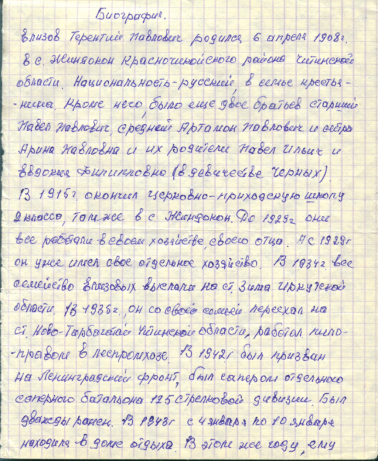 Биография.
Влизов Терентий Павлович родился 6 апреля 1908г.
в с. Жиндокон Красночикойского района Читинской
области. Национальность-русский, в семье крестья-
-нина. Кроме него, было еще двое братьев старший
Павел Павлович, средней Артамон Павлович и сестра
Арина Павловна и их родители Павел Ильич и
Евдокия Филипповна (в девичестве Черных).
В 1915г окончил Церковно-приходскую школу
2 класса, там же в с Жиндокон. До 1925г они
все работали в своем хозяйстве своего отца. А с 1929г
он уже имел свое отдельное хозяйство. В 1934г все
семейство Влизовых выслали на ст. Зима Иркутской
области. В 1935г, он со своей семьей переехал на
ст. Ново-Тарбагатай Читинской области, работал пило-
-правом в леспромхозе. В 1942г был призван
на Ленинградский фронт, был сапером отдельного
саперного батальона 125 стрелковой дивизии. Был
дважды ранен. В 1943г с 4 января по 10 января
находился в доме отдыха. В этом же году, ему